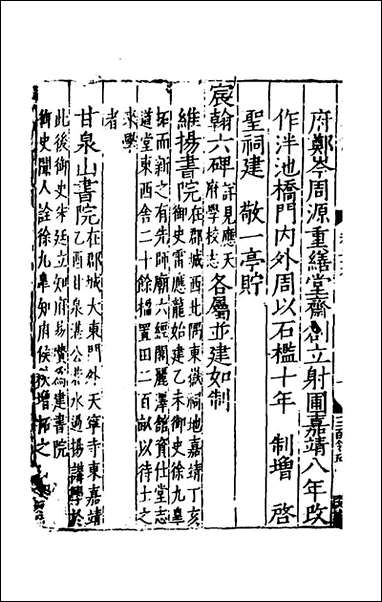 府鄭岑周源重繕堂齋創立射圃嘉靖八年改
作泮池橋門內外周以石檻十年 制增 啓
聖祠建 敬一亭貯
宸翰六碑詳見應天府學校志各屬並建如制
維揚書院在郡城西北隅東嶽祠地嘉靖丁亥
御史雷應龍始建乙未御史徐九臯
拓而新之有先師廟六經閣麗澤館資仕堂志
道堂東西舍二十餘楹置田二百畝以待士之
來學
者
甘泉山書院在郡城大東門外天寧寺東嘉靖
乙酉甘泉湛公若水過揚講學於
此後御史朱廷立知府易瓚爲建書院
御史聞人詮徐九臯知府侯秩增拓之